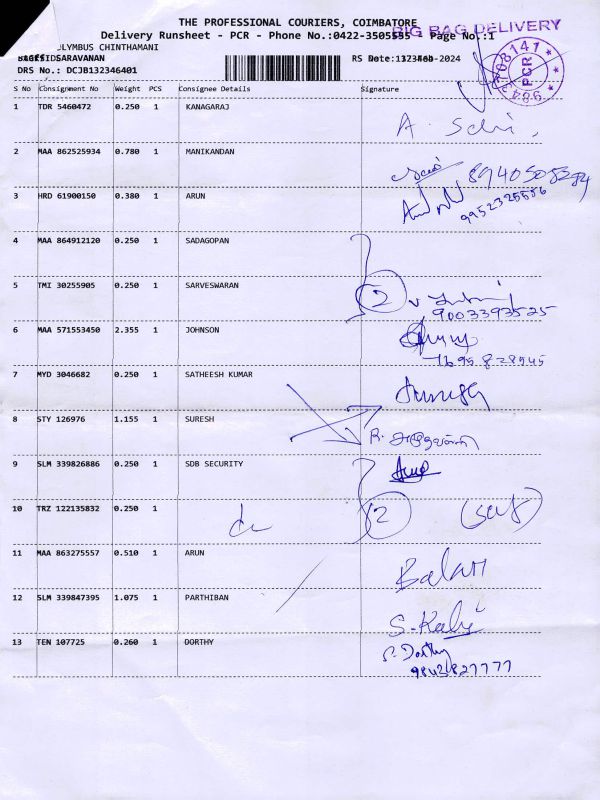 THE PROFESSIONAL COURIERS, COIMBATORE
BIG BAG DELIVERY
Delivery Runsheet - PCR - Phone No.:0422-3505535 - Page No.:1
OLYMBUS CHINTHAMANI
SARAVANAN
DRS No.: DCJB132346401
PCR
S No Consignment No Weight PCS Consignee Details Signature
1 TDR 5460472 0.250 1 KANAGARAJ
2 MAA 862525934 0.780 1 MANIKANDAN
8940505284
3 HRD 61900150 0.380 1 ARUN
9952325556
4 MAA 864912120 0.250 1 SADAGOPAN
5 TMI 30255905 0.250 1 SARVESWARAN
2
9003393525
6 MAA 571553450 2.355 1 JOHNSON
7695828945
7 MYD 3046682 0.250 1 SATHEESH KUMAR
8 STY 126976 1.155 1 SURESH
9 SLM 339826886 0.250 1 SDB SECURITY
10 TRZ 122135832 0.250 1
2
11 MAA 863275557 0.510 1 ARUN
Balan
12 SLM 339847395 1.075 1 PARTHIBAN
13 TEN 107725 0.260 1 DORTHY
Dorthy